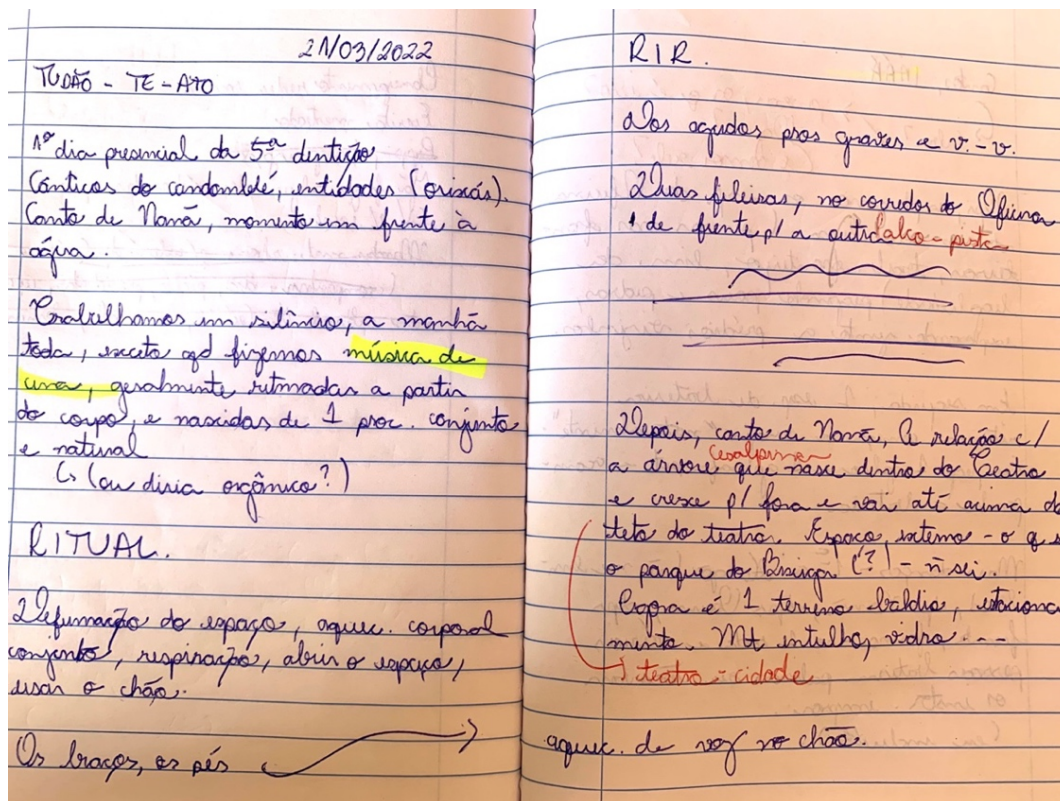 21/03/2022
TUDÃO - TE - ATO
1º dia presencial da 5ª dentição
Cânticos do candomblé, entidades (orixás).
Canto de Nanã, momento em frente à
água.
Trabalhamos em silêncio, a manhã
toda, exceto qd fizemos música de
cena, geralmente ritmadas a partir
do corpo, e nascidas de 1 proc. conjunto
e natural
↳ (ou diria orgânico?)
RITUAL.
Defumação do espaço, aquec. corporal
conjunto, respiração, abrir o espaço,
usar o chão.
Os braços, os pés
RIR.
Dos agudos pros graves e v.-v.
Duas fileiras, no corredor do Oficina
1 de frente p/ a outra palco-pista
Depois, canto de Nanã, a relação c/
cesalpina
a árvore que nasce dentro do Teatro
e cresce p/ fora e vai até acima do
teto do teatro. Espaço externo - o q s
o parque do Bixiga (?) - ñ sei.
Agora é 1 terreno baldio, estaciona
mento. Mt entulho, vidro ...
teatro-cidade
aquec. de voz no chão.